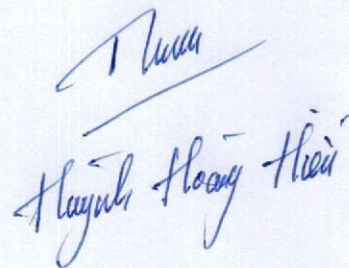 Huỳnh Hoàng Hiếu